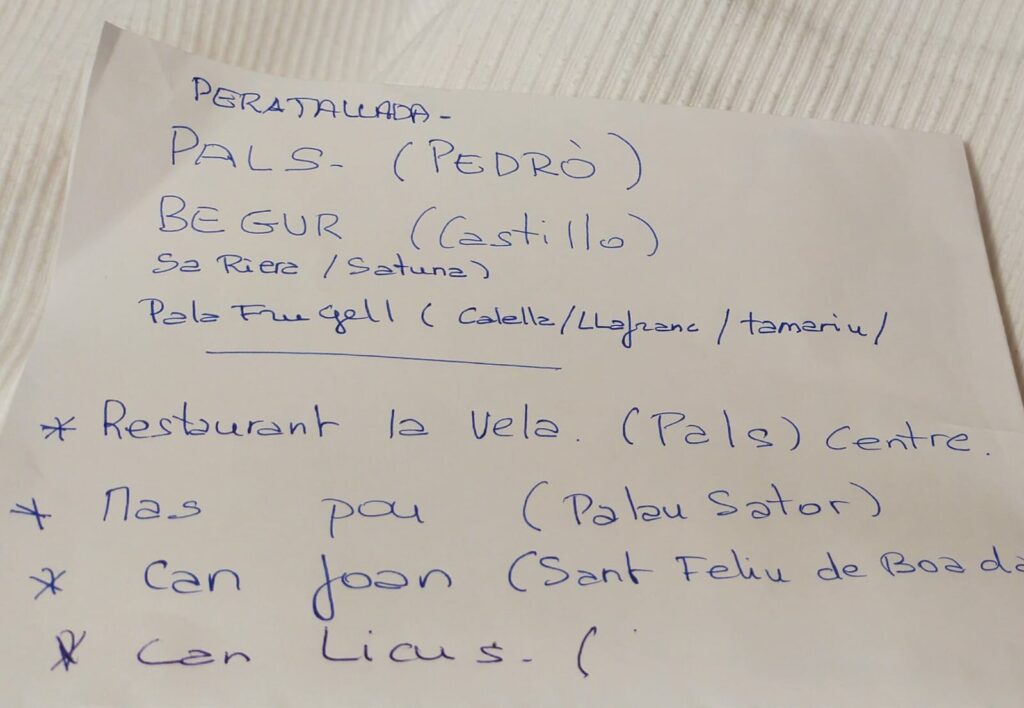 PERATALLADA-
PALS- (PEDRÒ)
BEGUR (Castillo)
Sa Riera / Satuna)
PalaFrugell ( Calella/LLafranc / tamariu/
* Restaurant la Vela. (Pals) Centre.
* Mas pou (Palau Sator)
* Can Joan (Sant Feliu de Boada
* Can Licus. (